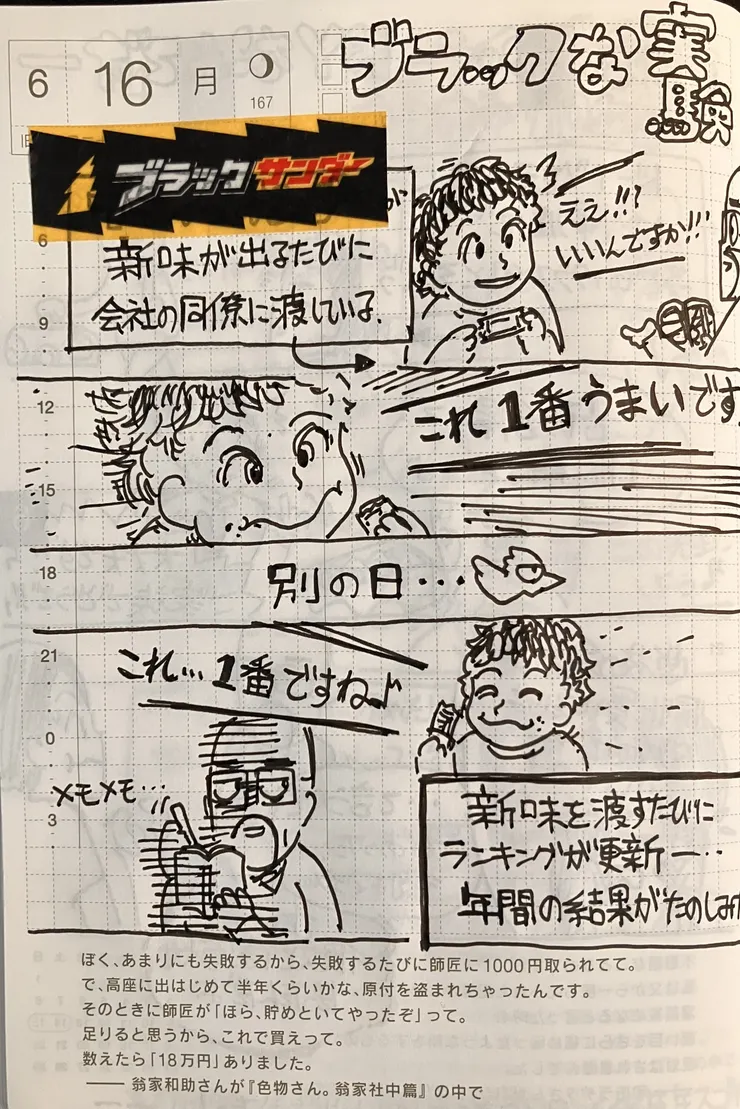 6
16
月
167
ブラックな実験
ブラックサンダー
が
新味が出るたびに
会社の同僚に渡している.
ええ!!?
いいんですか!!!
6
9
12
15
18
21
0
3
これ1番うまいです
別の日…
これ…1番ですね♪
メモメモ…
新味を渡すたびに
ランキングが更新ー‥
年間の結果がたのしみ
ぼく、あまりにも失敗するから、失敗するたびに師匠に1000円取られてて。
で、高座に出はじめて半年くらいかな、原付を盗まれちゃったんです。
そのときに師匠が「ほら、貯めといてやったぞ」って。
足りると思うから、これで買えって。
数えたら「18万円」ありました。
―― 翁家和助さんが『色物さん。翁家社中篇』の中で